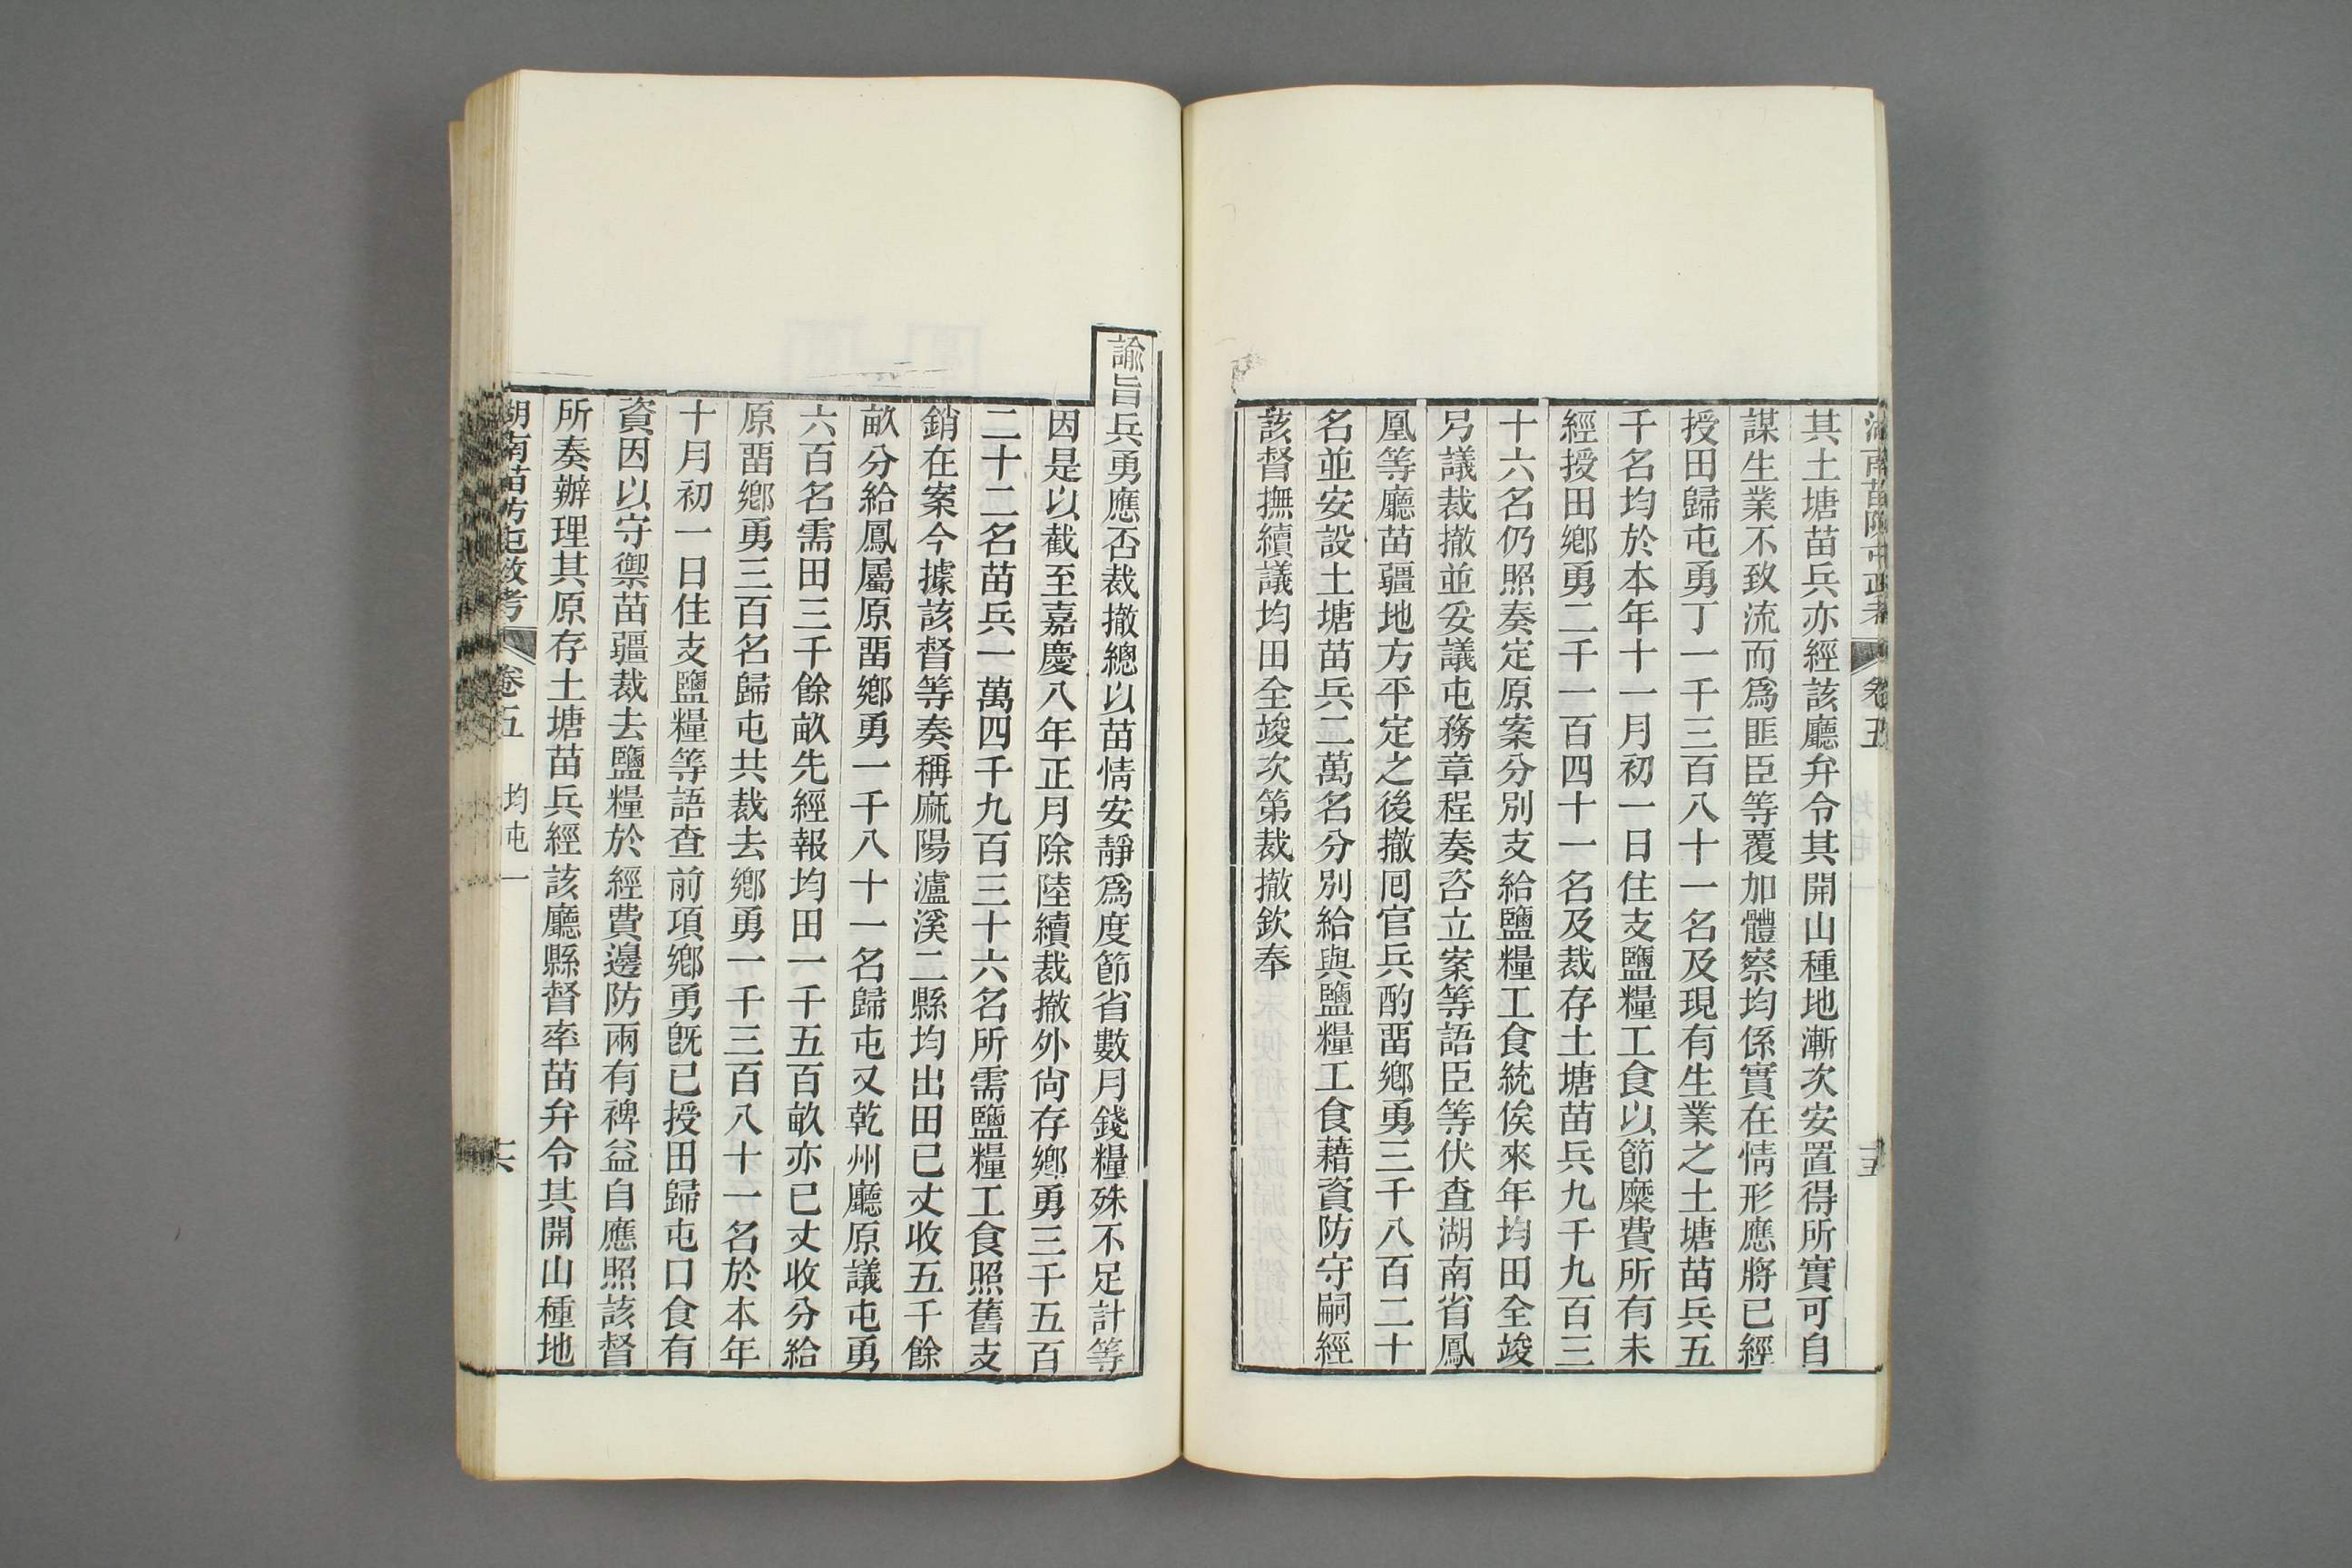 湖南苗防屯政考
卷五
均屯一
十五
其土塘苗兵亦經該廳弁令其開山種地漸次安置得所實可自
謀生業不致流而爲匪臣等覆加體察均係實在情形應將已經
授田歸屯勇丁一千三百八十一名及現有生業之土塘苗兵五
千名均於本年十一月初一日住支鹽糧工食以節糜費所有未
經授田鄉勇二千一百四十一名及裁存土塘苗兵九千九百三
十六名仍照奏定原案分別支給鹽糧工食統俟來年均田全竣
另議裁撤並妥議屯務章程奏咨立案等語臣等伏查湖南省鳳
凰等廳苗疆地方平定之後撤囘官兵酌畱鄉勇三千八百二十
名並安設土塘苗兵二萬名分別給與鹽糧工食藉資防守嗣經
該督撫續議均田全竣次第裁撤欽奉
諭旨兵勇應否裁撤總以苗情安靜爲度節省數月錢糧殊不足計等
因是以截至嘉慶八年正月除陸續裁撤外尙存鄉勇三千五百
二十二名苗兵一萬四千九百三十六名所需鹽糧工食照舊支
銷在案今據該督等奏稱麻陽瀘溪二縣均出田已丈收五千餘
畝分給鳳屬原畱鄉勇一千八十一名歸屯又乾州廳原議屯勇
六百名需田三千餘畝先經報均田一千五百畝亦已丈收分給
原畱鄉勇三百名歸屯共裁去鄉勇一千三百八十一名於本年
十月初一日住支鹽糧等語查前項鄉勇旣已授田歸屯口食有
資因以守禦苗疆裁去鹽糧於經費邊防兩有裨益自應照該督
所奏辦理其原存土塘苗兵經該廳縣督率苗弁令其開山種地
湖南苗防屯政考
卷五
均屯一
十六